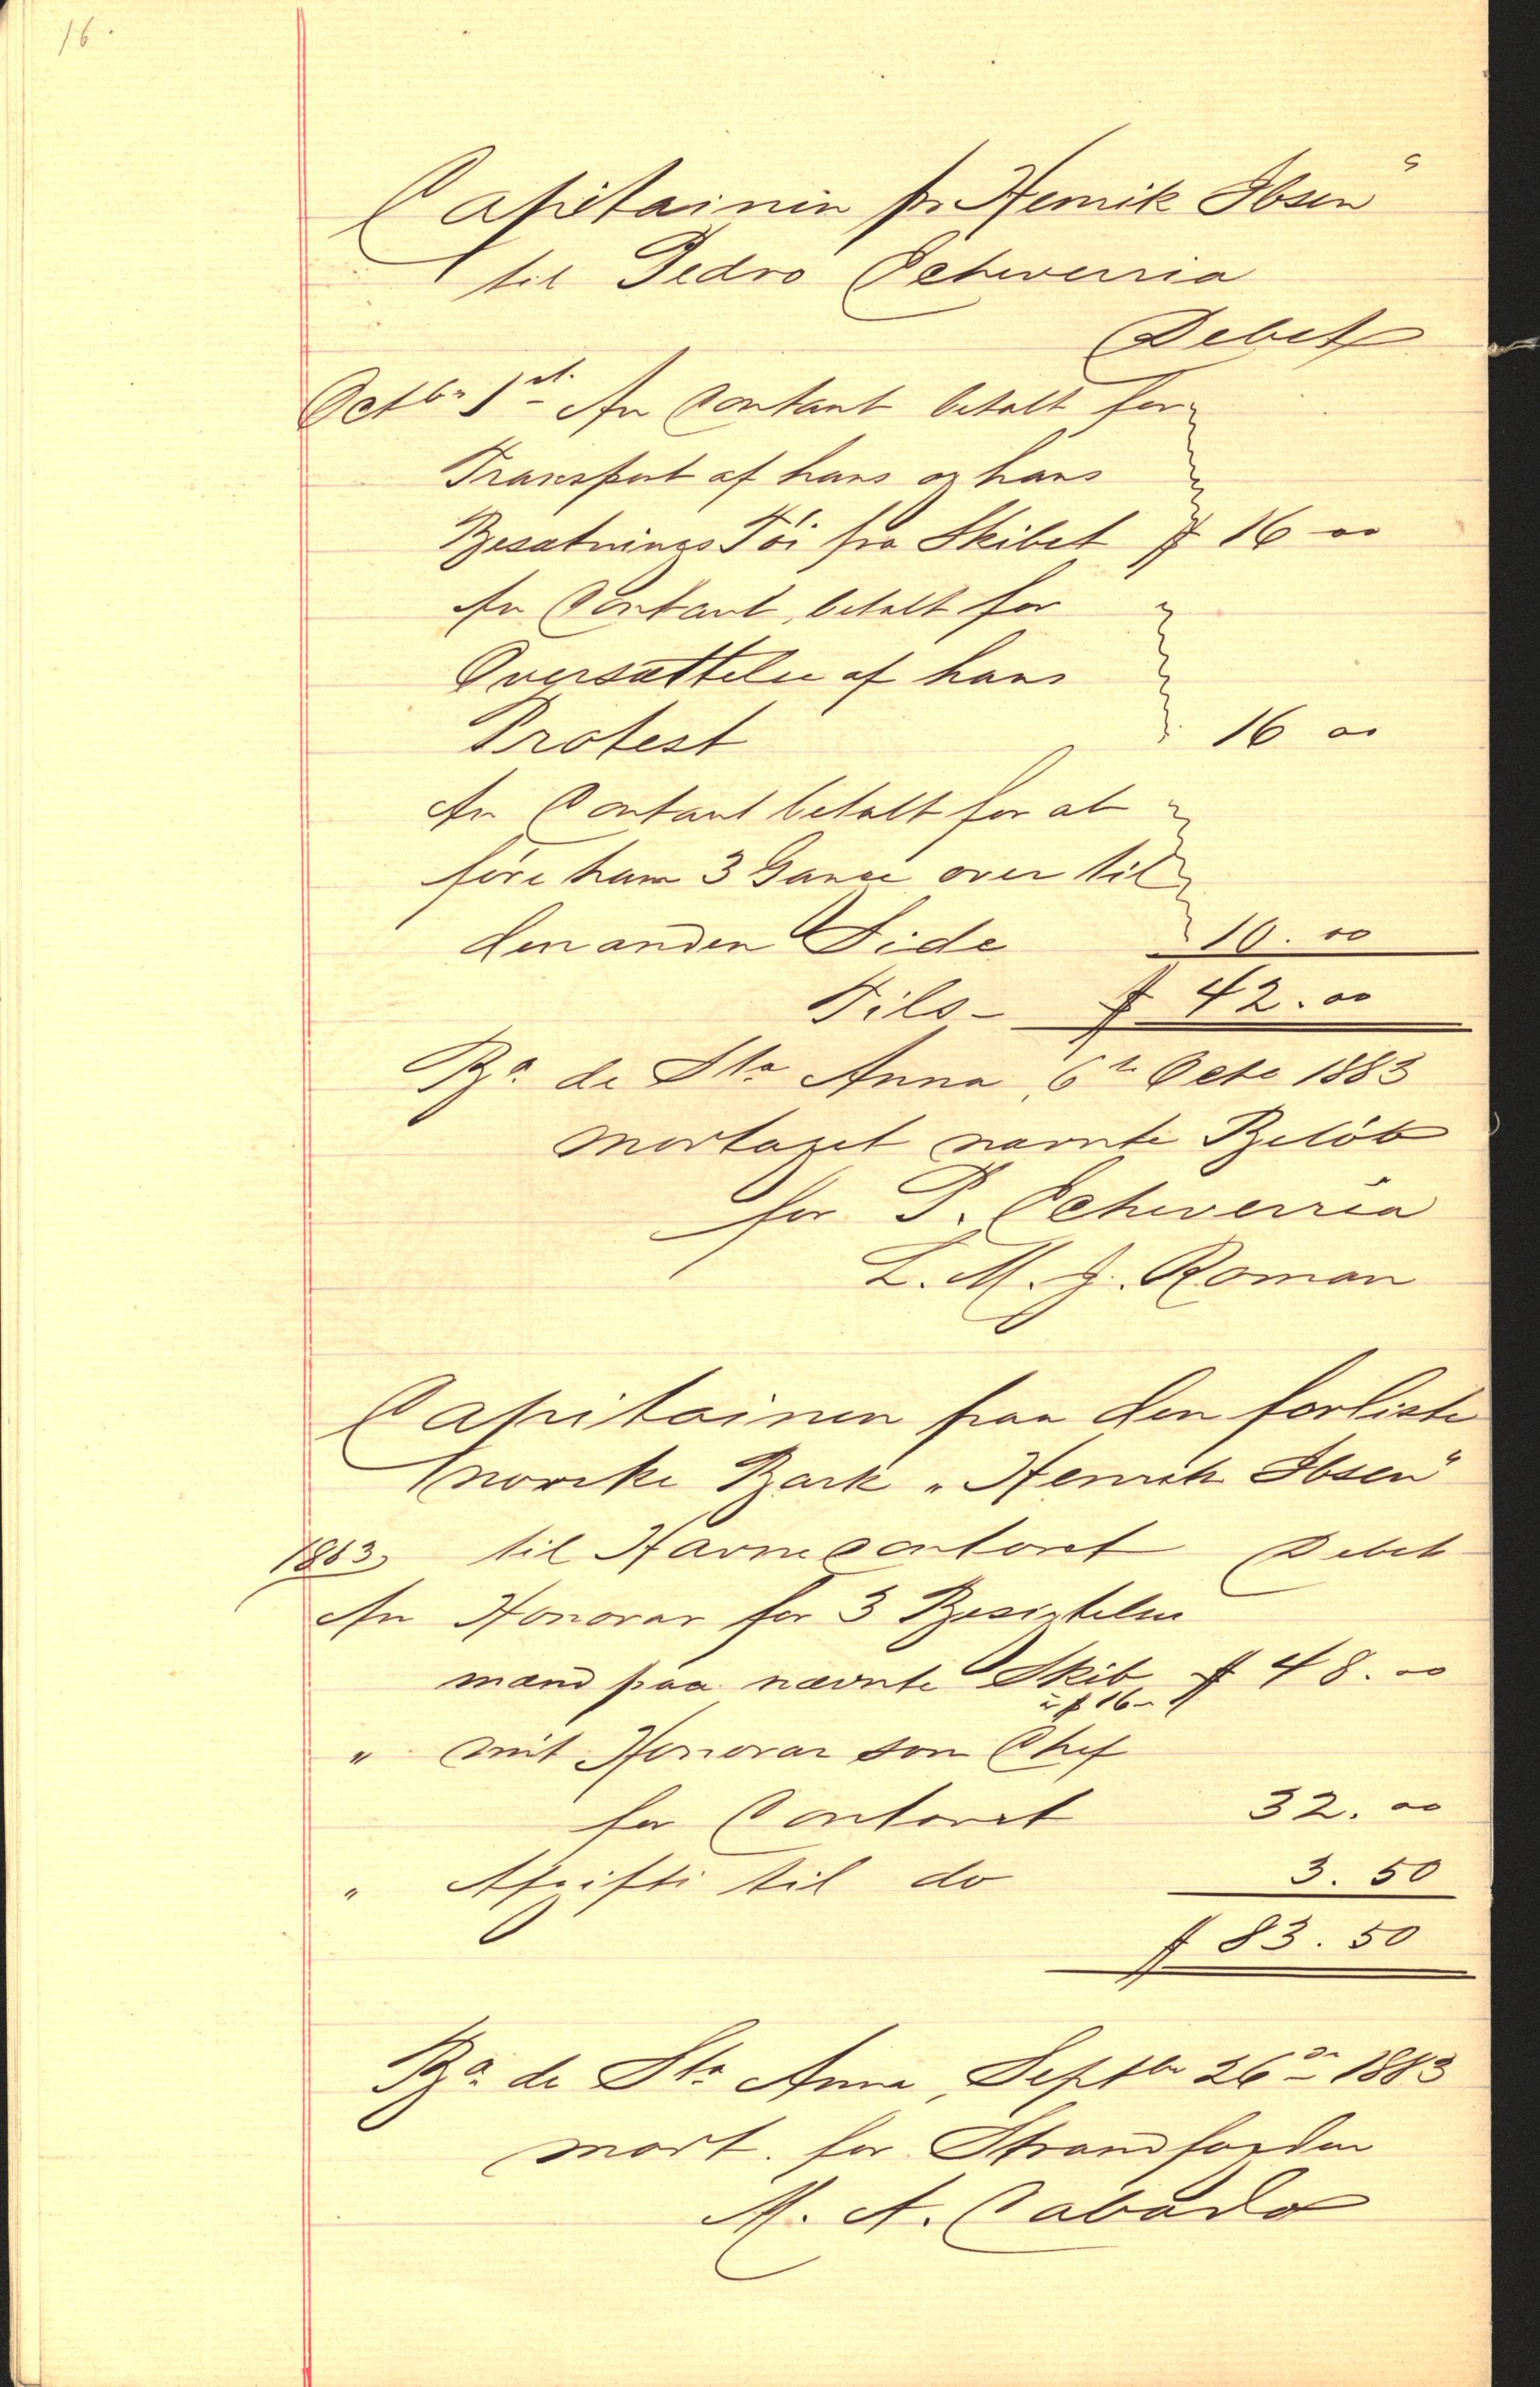 16.
Capitainen pr Henrik Ibsen"
til Pedro Echeverria
Debet
Octbr 1st An Contant betalt for
Transport af hans og hans
Besætnings Töi fra Skibet $ 16 00
An Contant, betalt for
Oversættelse af hans
Protest 16 00
An Contant betalt for at
före ham 3 Gange over til
den anden Side 10.00
Tils- $ 42.00
Ba. de Sta Anna, 6te Octo 1883
modtaget nævnte Belöb
for P. Echeverria
L. M. J. Roman
Capitainen paa den forliste
norske Bark "Henrik Ibsen"
1883, til Havnecontoret Debet
An Honorar for 3 Besigtelses
mænd paa nævnte Skib $ 48.00
à $ 16-
" mit Honorar som Chef
for Contoret 32.00
" Afgifti til do 3.50
$ 83.50
Ba. de Sta Anna, Septbr 26de 1883
modt. for Strandfogden
M. A.